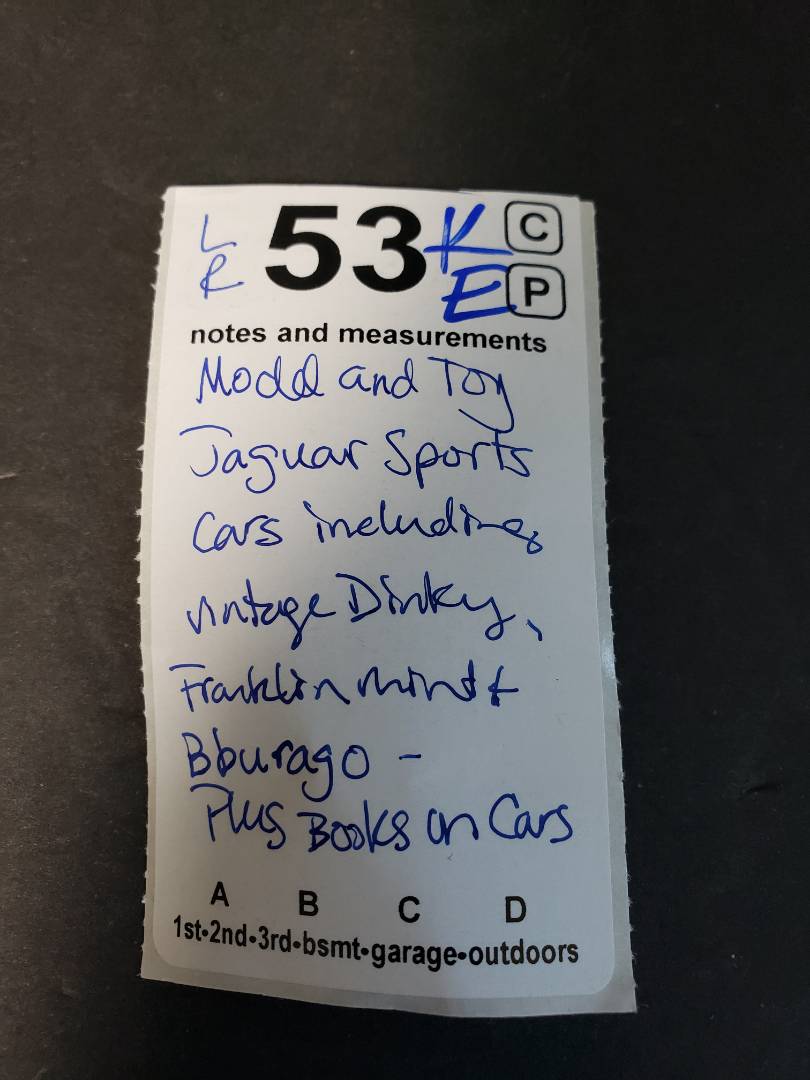 L 53 K C
R E P
notes and measurements
Model and Toy
Jaguar Sports
Cars including
vintage Dinky,
Franklin mint +
Bburago -
Plus Books on Cars
A B C D
1st•2nd•3rd•bsmt•garage•outdoors